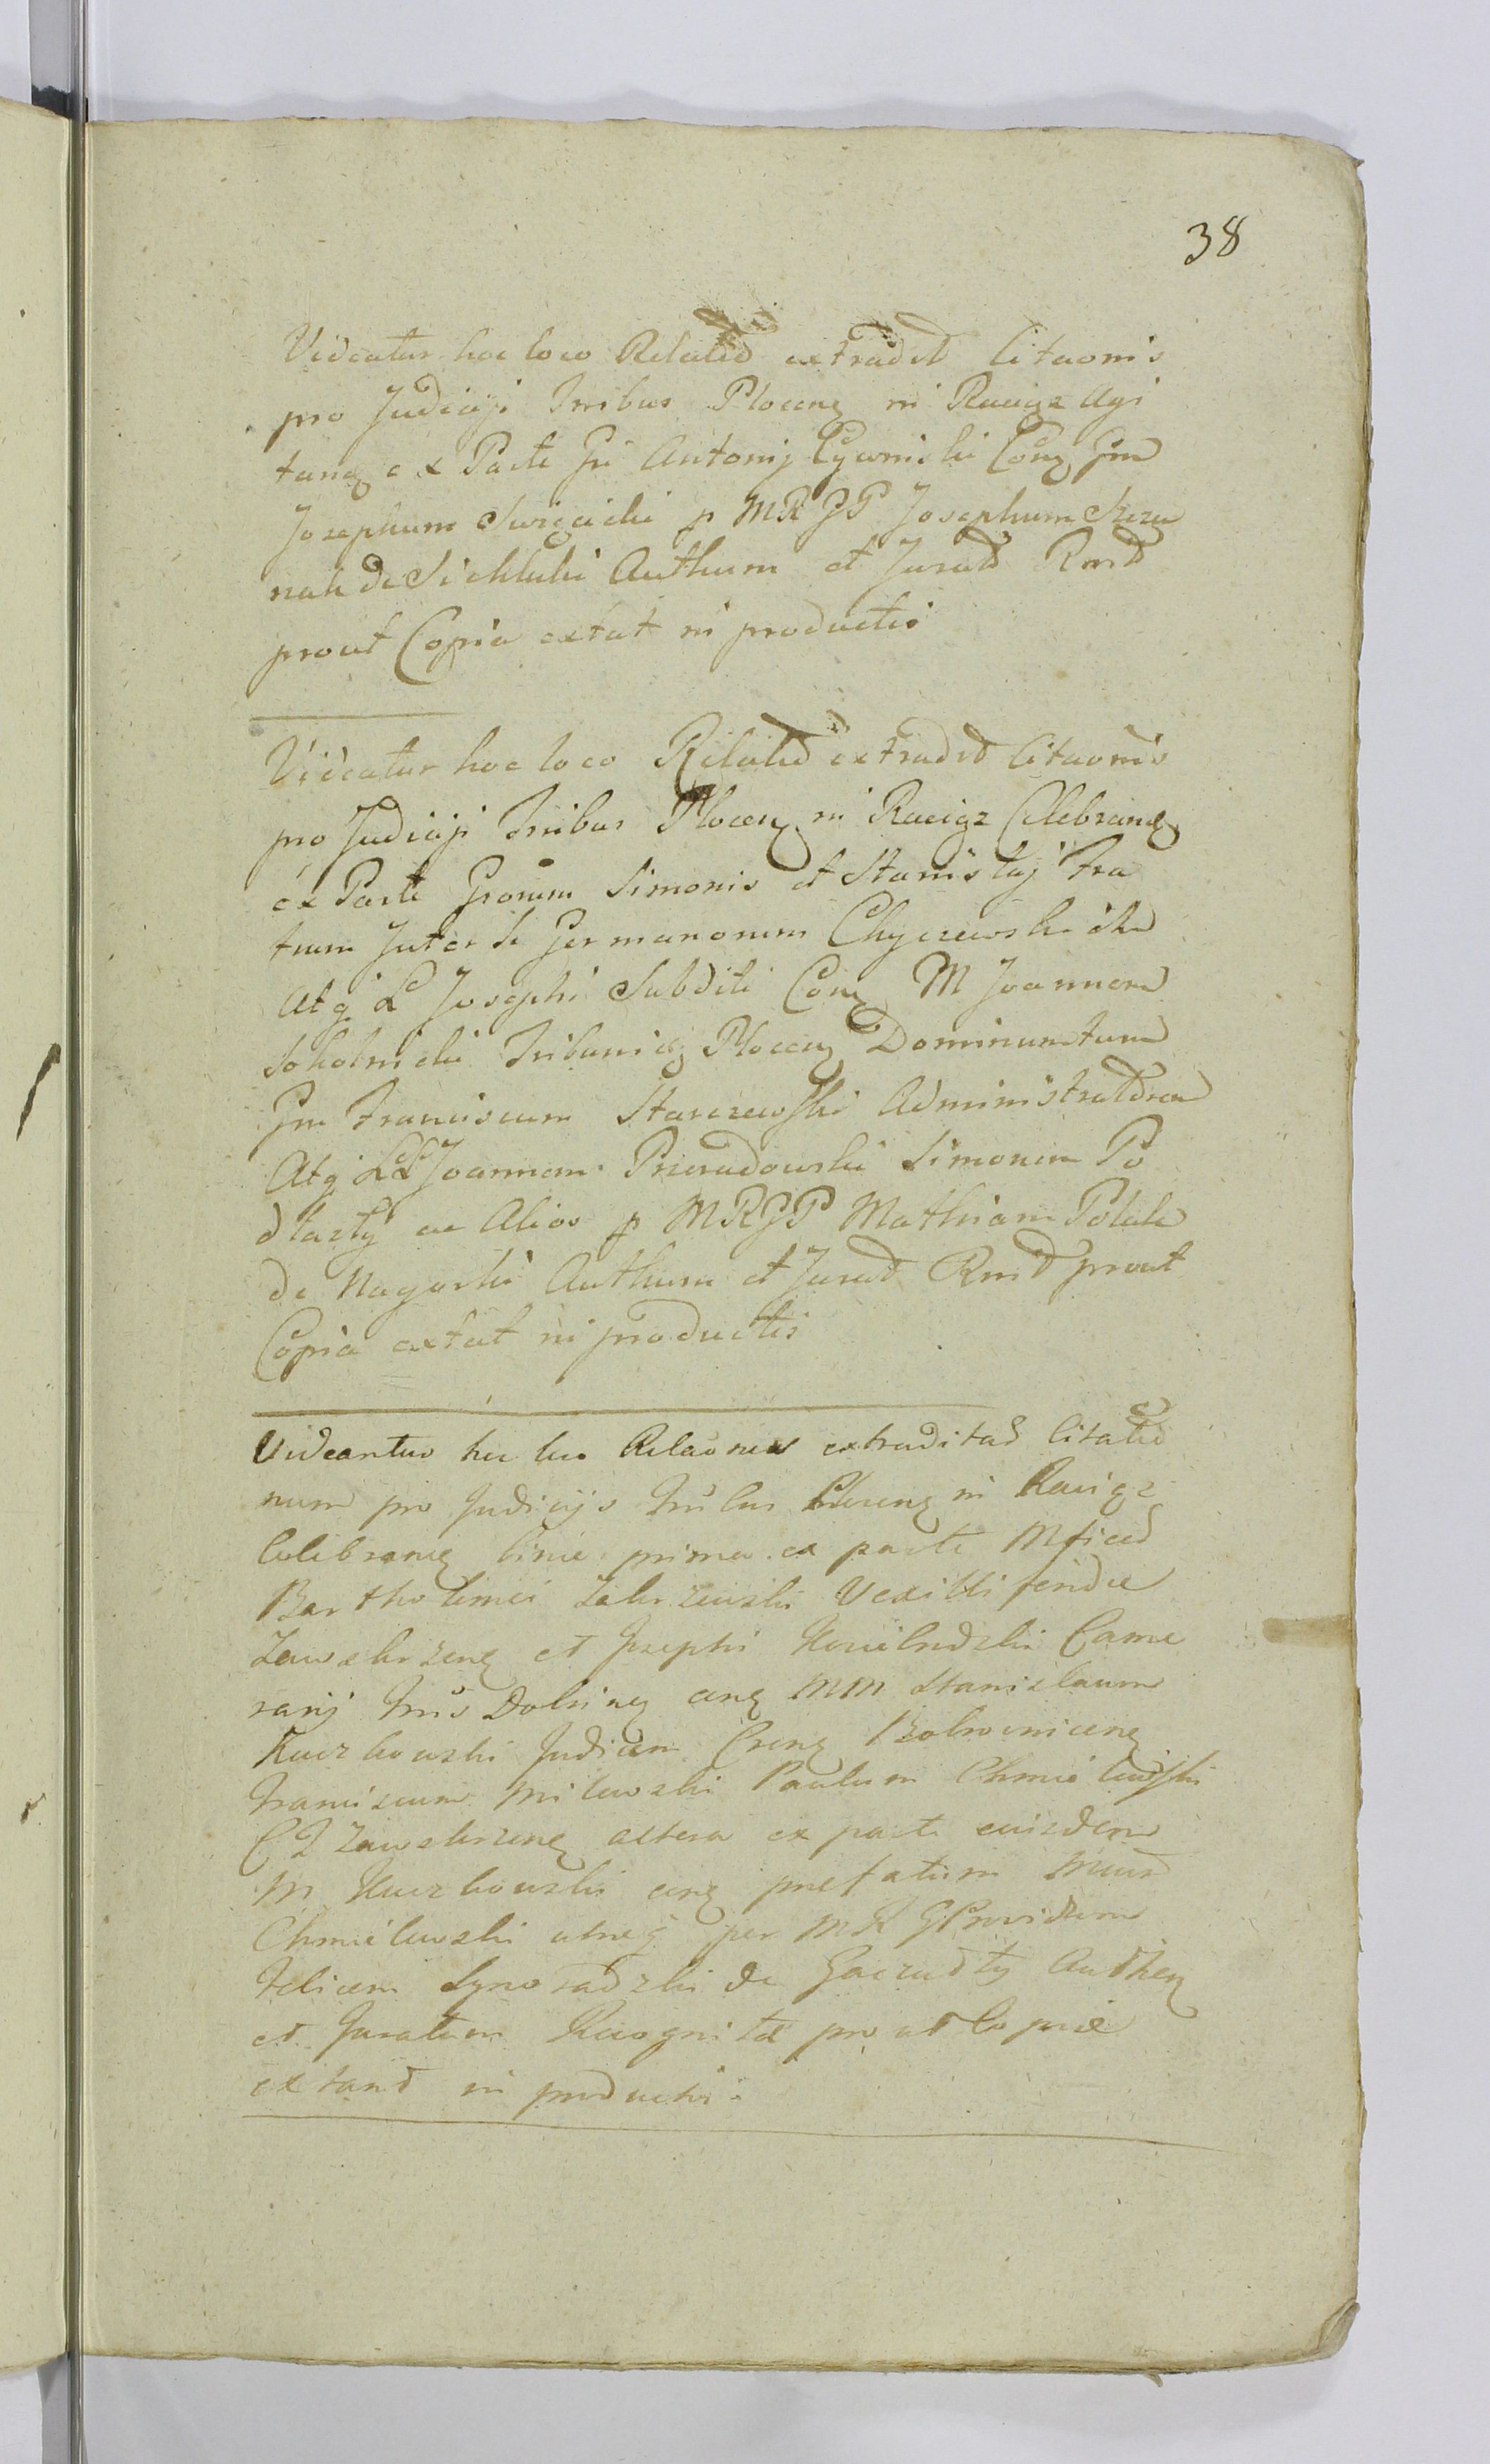 38
Videatur hoc loco Relatio extradit Citaonis
pro Judicijs Trribus Plocen in Raciąz Agi
tand ex Parte Gsi Antonij Cywinski Con Gsm
Josephum Swięcicki p MRGP Josephum Szczu
de Sichluki Authum et Jurat Rnit
prout Copia extat in productis
Videatur hoc loco Relatio extradit Citaonis
pro Judicijs Trribus Plocen in Raciąz Celebrand
ex Parte Gsorum Simonis et Stanislaj Fra
trum Inter se Germanorum Chyczewskich
Atq L Josephi Subditi Con M Joannem
Sokolnicki Tribunid Plocen Dominum tum
Gsm Franciscum Starczewski Administratorem
Atq LL Joannem Przeradowski Simonem Po
dlasty ac Alios p MRGP Mathiam Polak
de Nagorki Authum et Jurat Rnit prout
Copia extat in productis
Videantur hic loco Relaones extraditae Citatio
num pro Judicijs Trribus Plocen in Raciąz
Celebrand binae prima ex parte Mficd
Bartholomei Zakrzewski Vexilliferidae
Zawskrzen et Josephi Camer
rarij Trris Dobrinen con MM Stanislaum
Kuczborski Judicem Cren Bobrownicen
Franciscum Milewski Paulum Chmielewski
C T Zawskrzen altera ex parte eiusdem
M Kuczborski con praefatum Mum
Chmielewski utraq per MR GProvidum
Felicem Synoradzki de Authen
et Juratum Recognitae prout Copiae
extant in productis